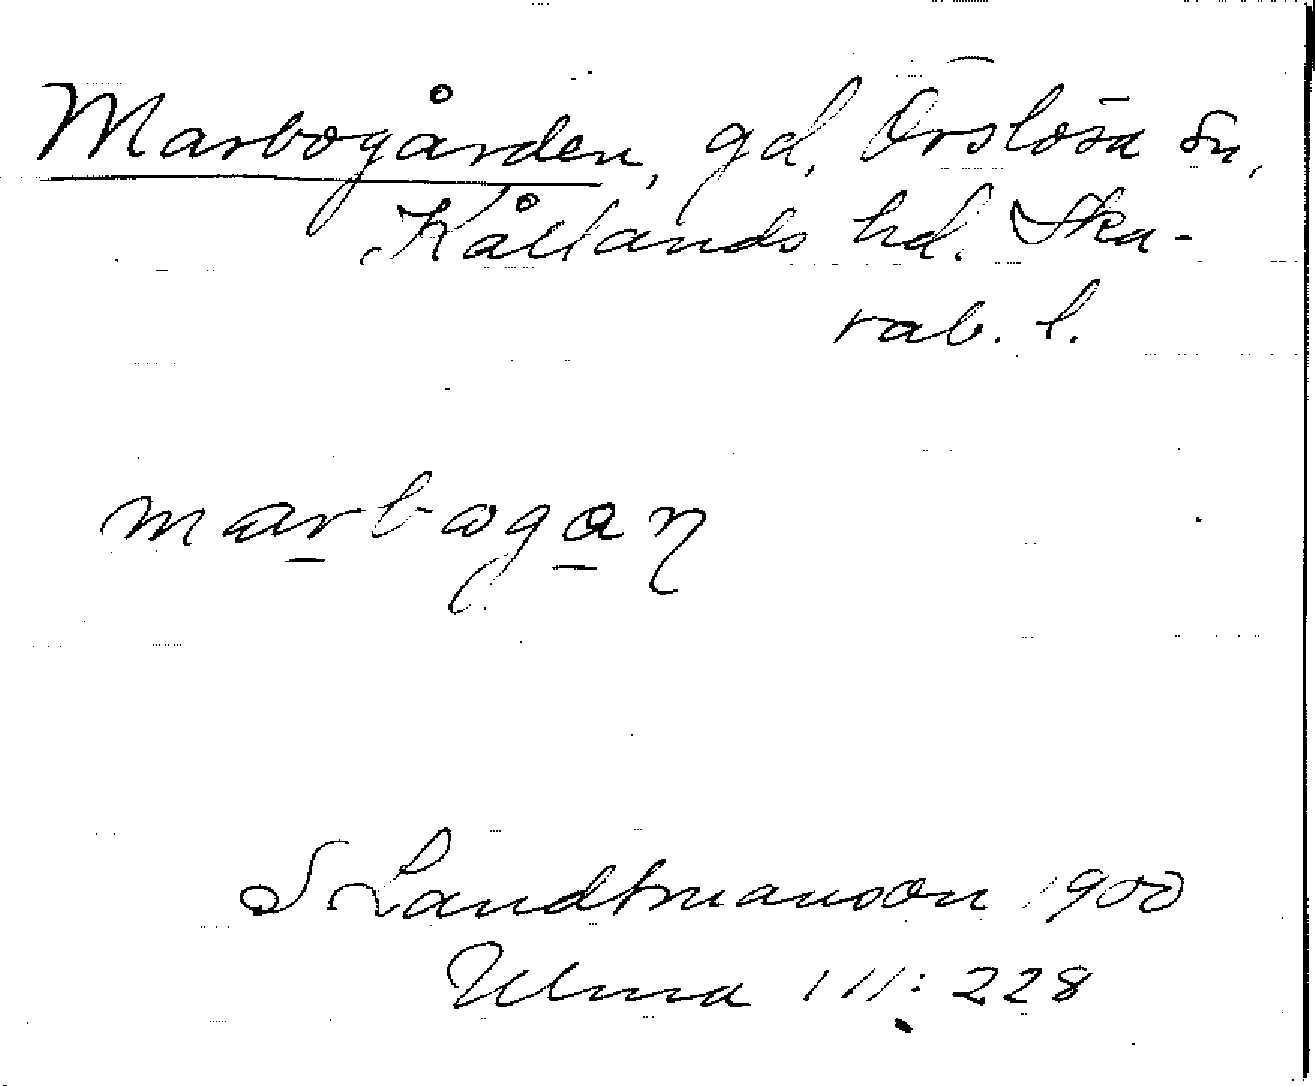 Marbogården, gd, Örslösa sn,
Kållands hd. Ska-
rab. l.
marbogan
S Landtmanson 1900
Ulma 111:228